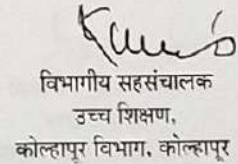 विभागीय सहसंचालक
उच्च शिक्षण,
कोल्हापूर विभाग. कोल्हापूर